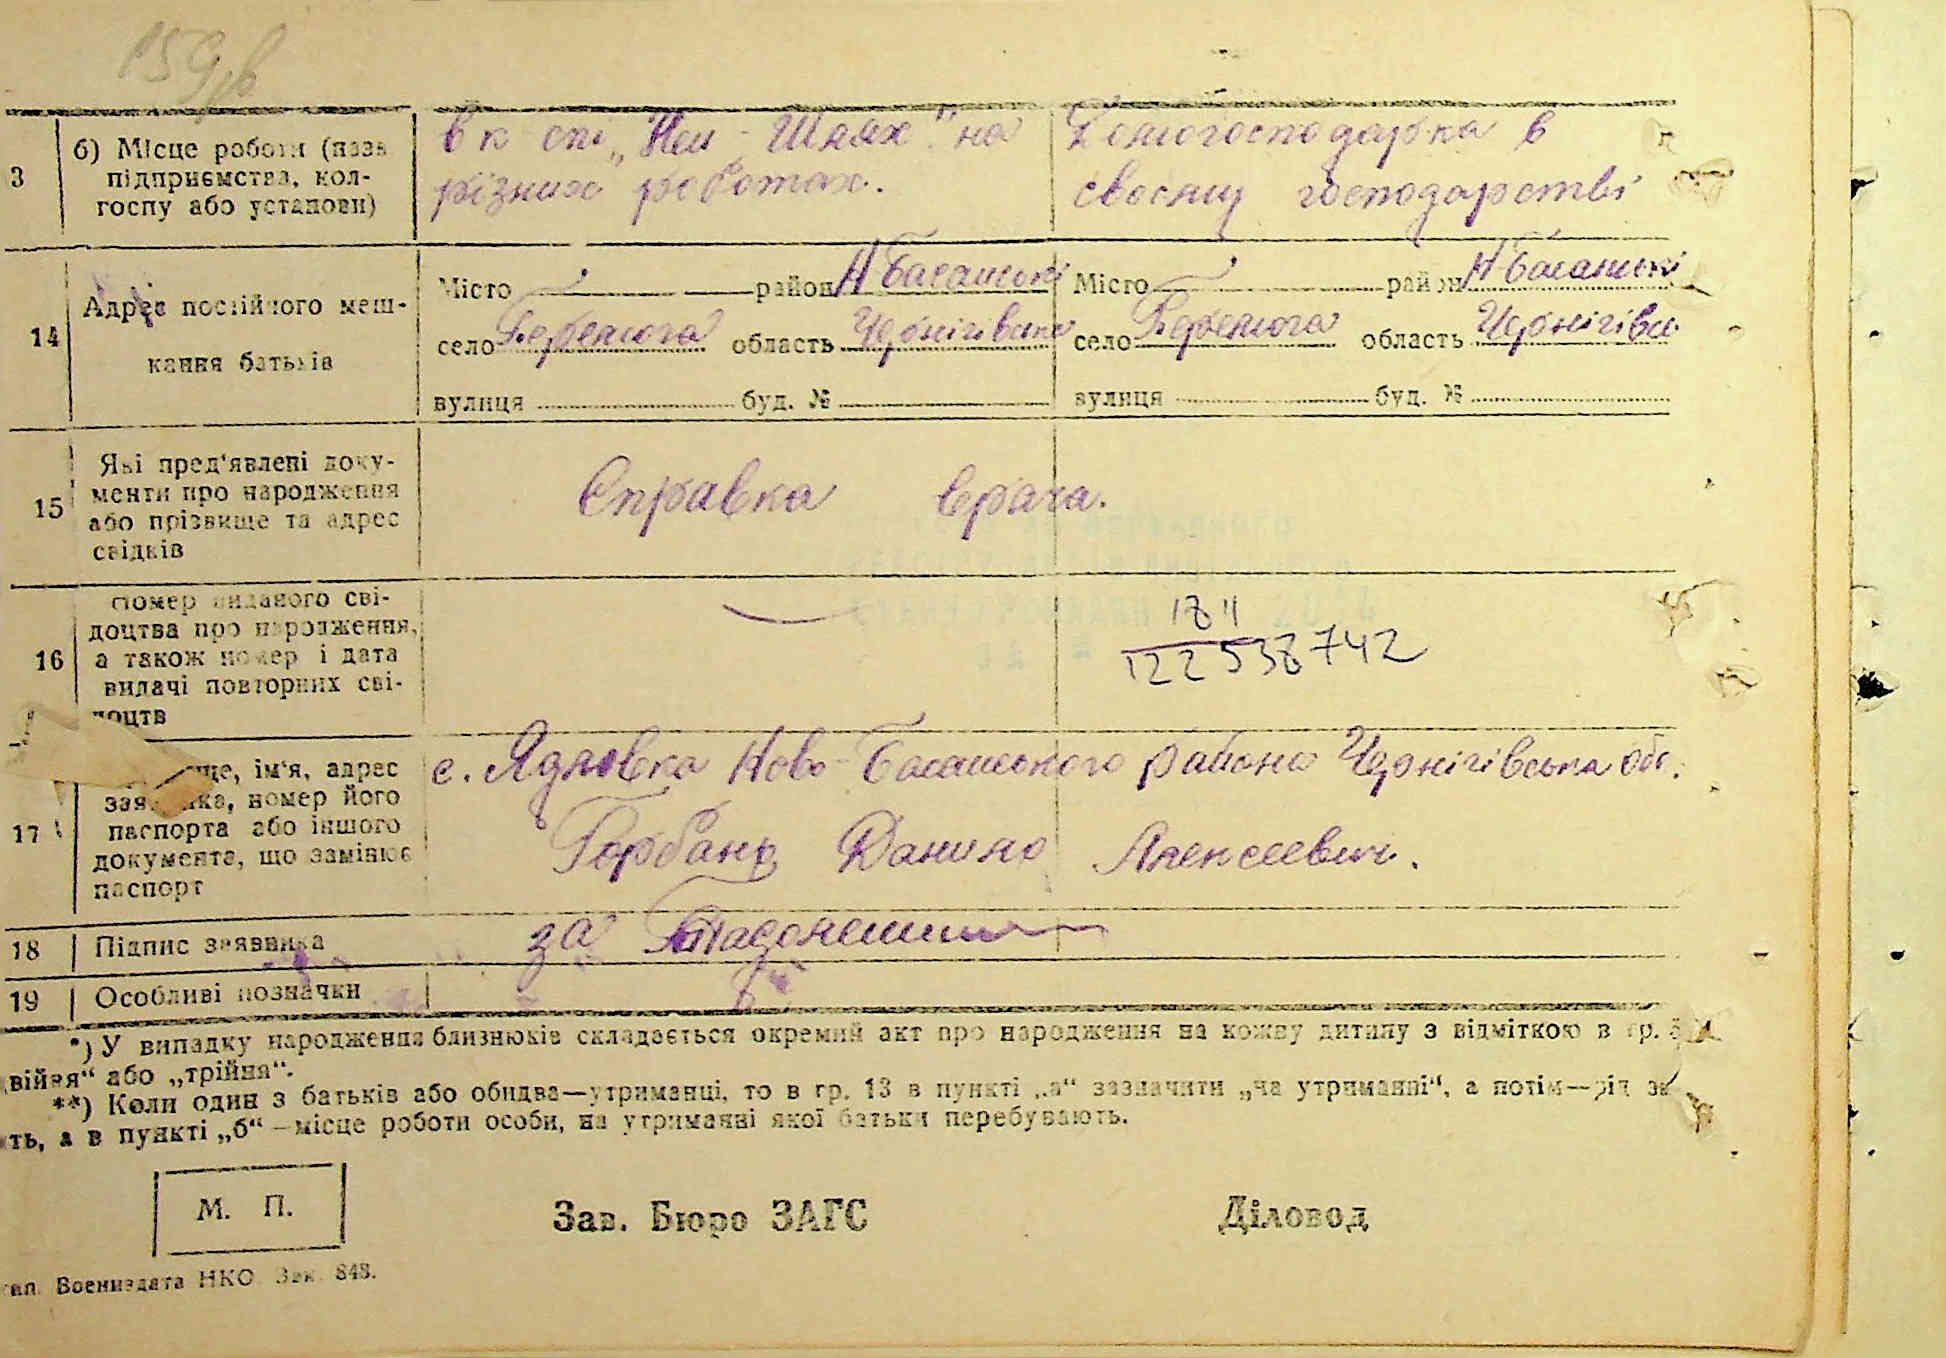 159 зв
3 б) Місце роботи (назв підприємства, кол-госпу або установи)
в к спі „Нш - Шлях" на
різних роботах.
Домогосподарка в
своєму господарстві
14 Адрес постійного меш-
кання батьків
Місто район Н-Басанський
село область Чернігівська
вулиця буд. №
Місто район Н-Басанськи
село область Чернігівсь
вулиця буд. №
15 Які пред'явлені доку-
менти про народження
або прізвище та адрес
свідків
Справка врача.
16 Номер виданого сві-
доцтва про народження,
а також номер і дата
видачі повторних сві-
доцтв
18 II
122538742
17 ще, ім'я, адрес
заявника, номер його
паспорта або іншого
документа, що замінює
паспорт
с. Ядловка Ново-Басанського района Чернігівська обл.
Горбань Данило Алексеевич.
18 Підпис заявника
за
19 Особливі позначки
*) У випадку народження близнюків складається окремий акт про народження на кожну дитину з відміткою в гр. 5
двійня" або „трійня".
**) Коли один з батьків або обидва—утриманці, то в гр. 13 в пункті „а" зазначити „на утриманні", а потім—рід за
ть, а в пункті „б" —місце роботи особи, на утриманні якої батьки перебувають.
М. П.
Зав. Бюро ЗАГС
Діловод
тип. Воениздата НКО Зак. 848.